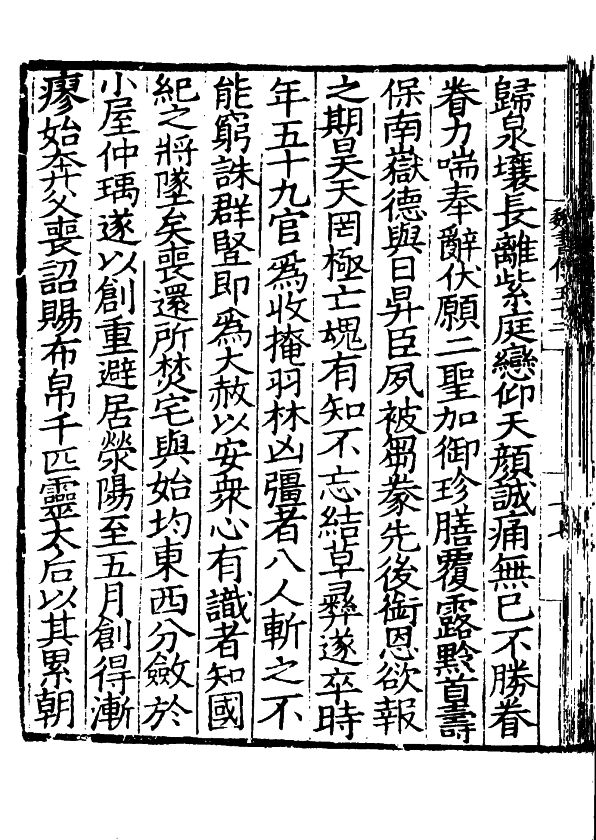 歸泉壤長離紫庭戀仰天顏誠痛無已不勝眷
眷力喘奉辭伏願二聖加御珍膳覆露黔首壽
保南嶽德與日昇臣夙被芻豢先後銜恩欲報
之期昊天罔極亡塊有知不忘結草㝷遂卒時
年五十九官爲收掩羽林凶彊者八人斬之不
能窮誅群豎即爲大赦以安衆心有識者知國
紀之將墜矣喪還所焚宅與始均東西分斂於
小屋仲瑀遂以創重避居滎陽至五月創得漸
瘳始奔父喪詔賜布帛千匹靈太后以其累朝
魏書傳五十二
十七